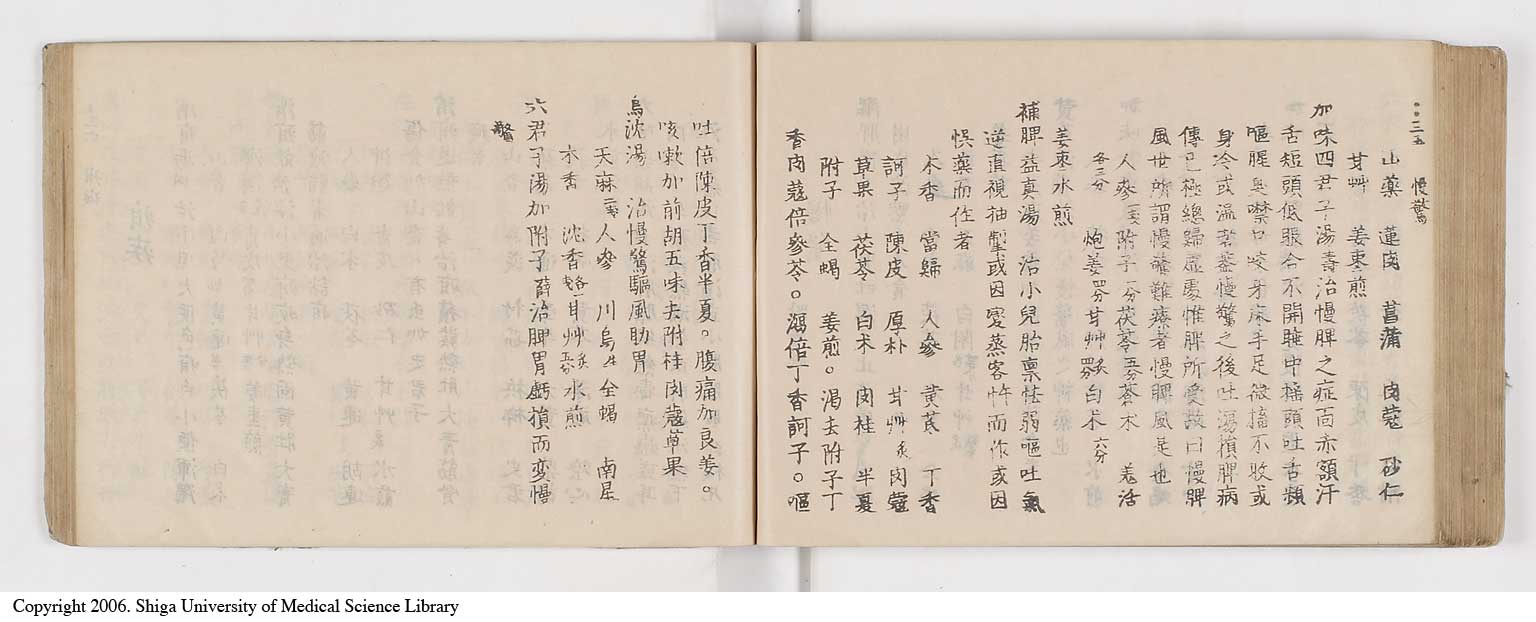 慢驚
山藥 蓮肉 菖蒲 肉蔻 砂仁
甘艸 姜棗煎
加味四君子湯 壽治慢脾之症面赤額汗
舌短頭低眼合不開睡中搖頭吐舌頻
嘔腥臭噤口咬牙床手足微搐不收或
身冷或温 慢驚之後吐瀉損脾病
傳已極總歸虚處惟脾所受故曰慢脾
風世所謂慢驚難療者慢脾風是也
人參 附子 茯苓 木 羗活
各三分 炮姜 甘艸 白木六分
姜棗水煎
補脾益真湯 治小兒胎禀怯弱嘔吐氣
逆直視抽掣或因 蒸客忤而作或因
悮藥而作者
木香 當歸 人參 黄茋 丁香
訶子 陳皮 厚朴 甘艸炙 肉蔻
草果 茯苓 白朮 肉桂 半夏
附子 全蝎 姜煎。渇去附子丁
香肉蔻倍參苓。瀉倍丁香訶子。嘔
吐倍陳皮丁香半夏。腹痛加良姜。
咳嗽加前胡五味去附桂肉蔻草果
烏沈湯 治慢驚驅風助胃
天麻 人參 川烏 全蝎 南星
木香 沈香 甘艸 水煎
六君子湯加附子 薛治脾胃虧損而変慢
驚
Copyright 2006. Shiga University of Medical Science Library